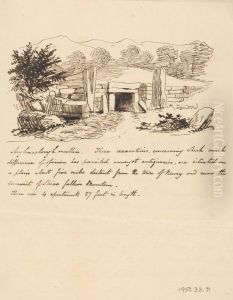 These excavations, concerning which much
difference of opinion has prevailed amongst antiquaries, are situated in
a plain about five miles distant from the town of Newry and near the
summit of Slieve Gullion Mountain.
There are 4 apartments 37 feet in length.
1957.38.71